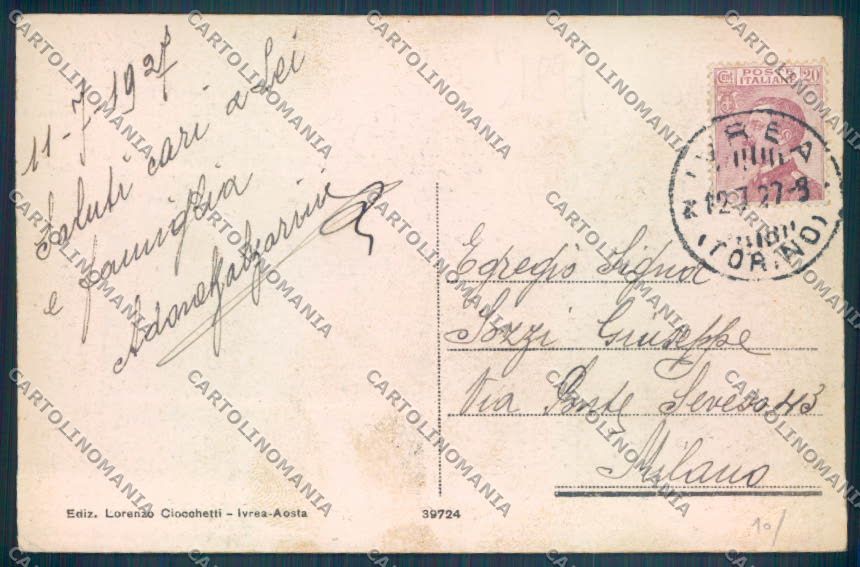 11-7-1927
Saluti cari a Lei
e famiglia
Cent POSTE 20
ITALIANE
IVREA
12.7.27-9
(TORINO)
Egregio Signor
Pozzi Giuseppe
Via Ponte Seveso 43
Milano
Ediz. Lorenzo Ciocchetti - Ivrea-Aosta
39724
10/
CARTOLINOMANIA